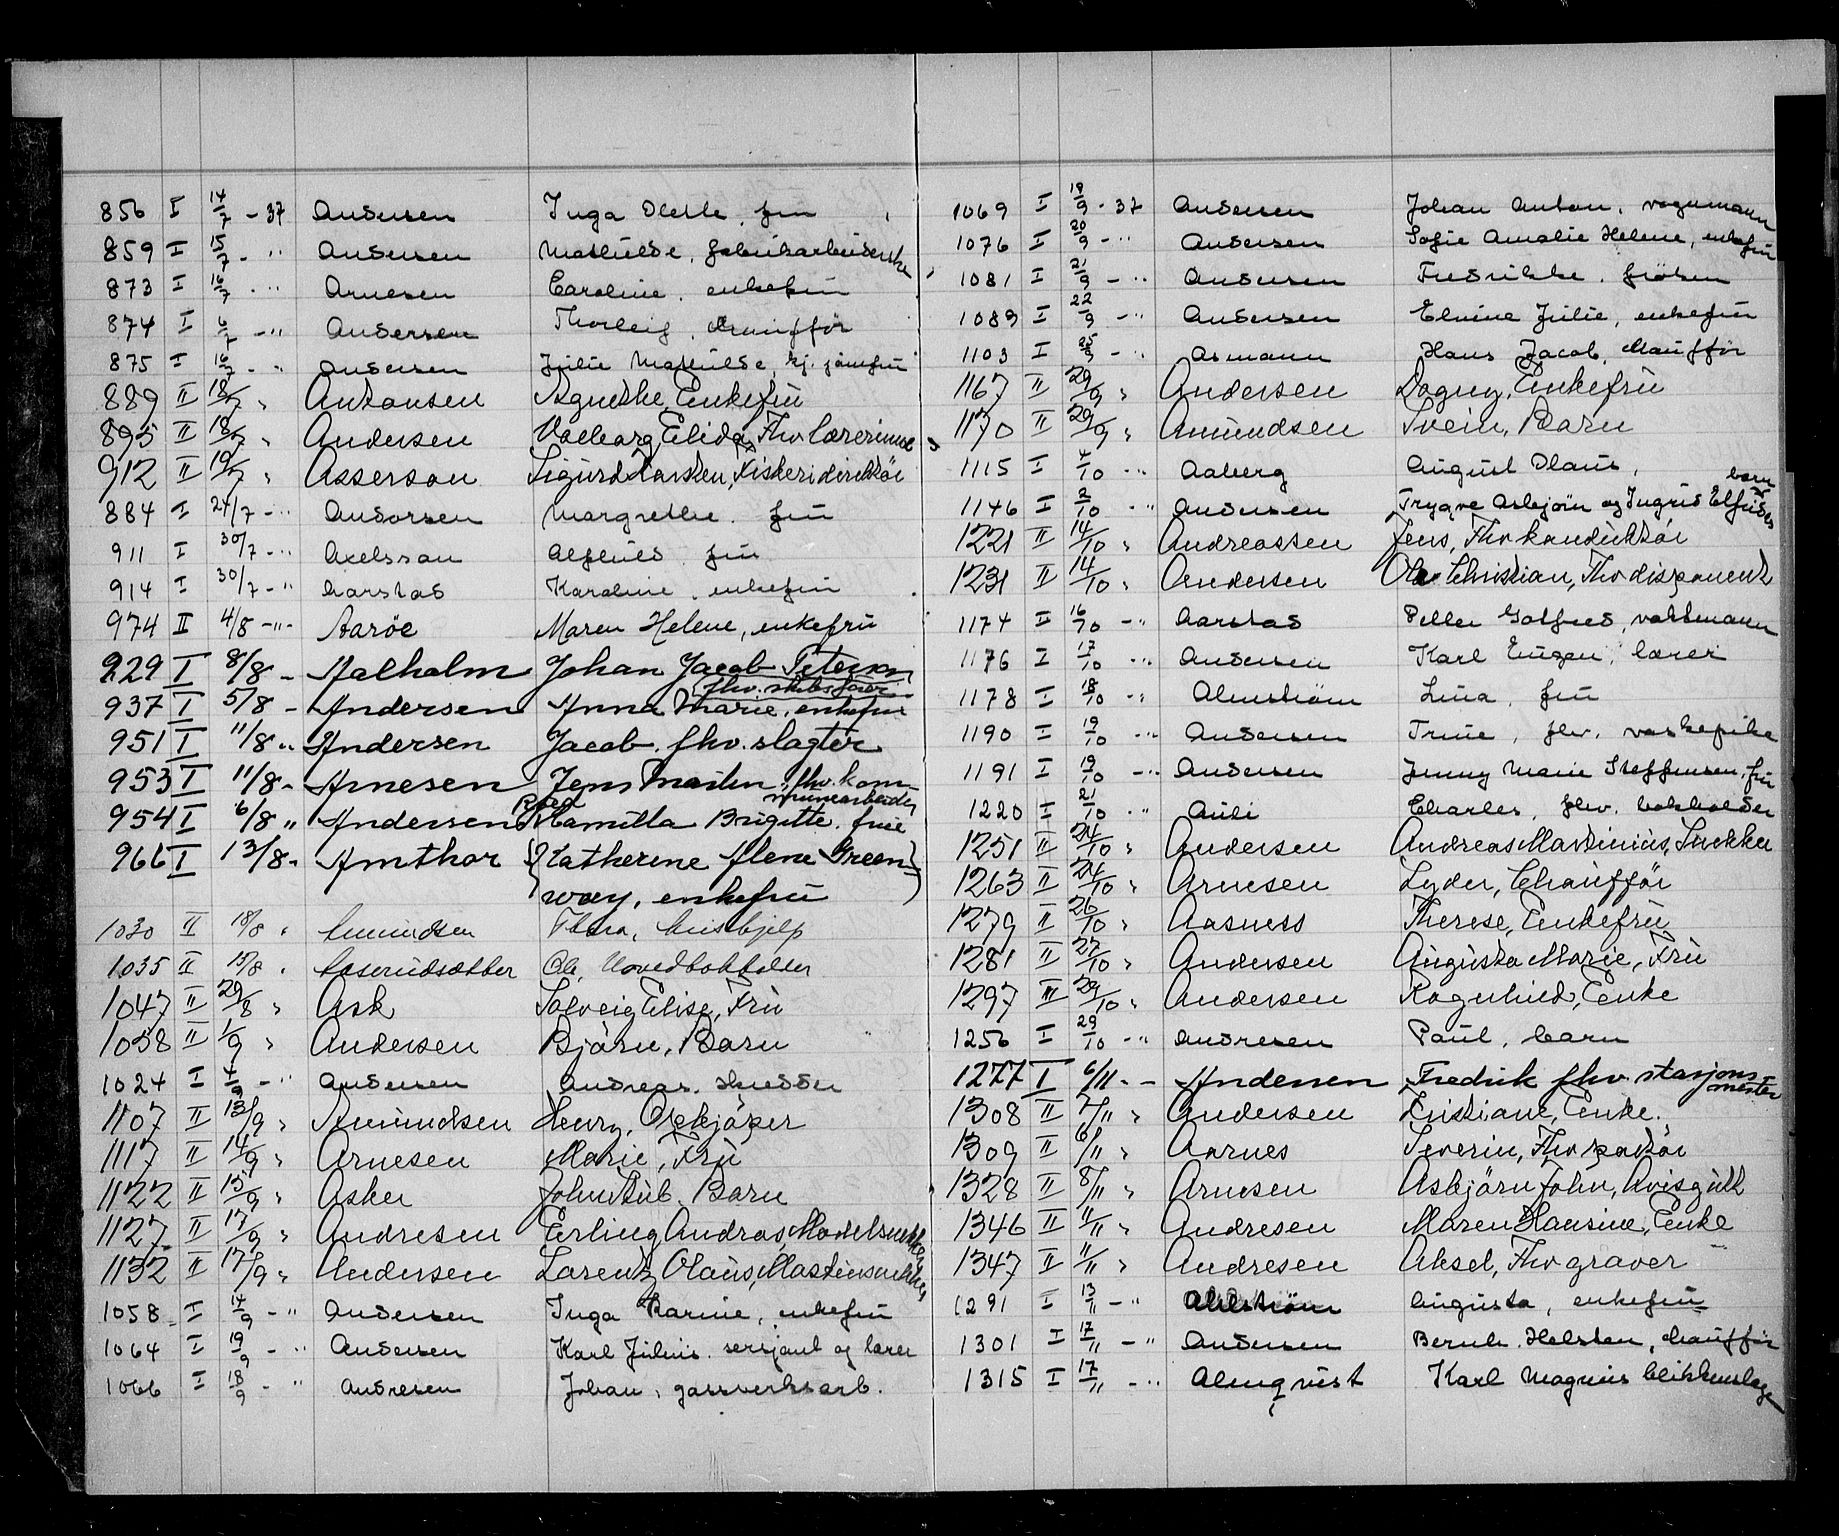 856 I 14/7 - 37 Andersen Inga Olette, fru
859 I 15/7 - " Andersen Mathilde, fabrikarbeiderske
873 I 16/7 - " Arnesen Caroline, enkefru
874 I 6/7 - " Andersen Thorleif, chauffør
875 I 16/7 - " Andersen Julie Mathilde, hj. jomfru
889 II 18/7 " Antonsen Agnethe, Enkefru
895 II 18/7 " Andersen Valborg Elida, Fhv lærerinne
912 II 19/7 " Asserson Sigurd Karsten, Fiskeridirektør
884 I 24/7 - " Andorsen Margrethe, fru
911 I 30/7 - " Axelsson Alfhild, fru
914 I 30/7 - " Aarstad Karoline, enkefru
974 II 4/8 - " - Aarøe Maren Helene, enkefru
929 I 8/8 - Aalholm Johan Jacob Peterson
fhv. skibsfører
937 I 5/8 - Andersen Anna Marie, enkefru
951 I 11/8 " Andersen Jacob. fhv. slagter
953 I 11/8 - Arnesen Jens Martin, fhv. kom-
munearbeider
954 I 6/8 " Andersen Roed Kamilla Brigitte. frue
966 I 13/8 - Amthor { Katherine Alene Green-
way, enkefru }
1030 II 18/8 " Amundsen Thora, hushjelp
1035 II 15/8 " Aaserudsætber Ole, Hovedbokholder
1047 II 29/8 " Ask Solveig Elise, Fru
1058 II 1/9 " Andersen Bjørn, Barn
1024 I 4/9 - " Andersen Andreas. skredder
1107 II 13/9 " Amundsen Henry, Opkjøper
1117 II 14/9 " Arnesen Marie, Fru
1122 II 15/9 " Asker John Stub. Barn
1127 II 17/9 " Andresen Erling Andreas, Modelsnekker
1132 II 17/9 " Andersen Larentz Olaus, Mastersnekker
1058 I 14/9 - " Andersen Inga Karine, enkefru
1064 I 19/9 - " Andersen Karl Julius. sersjant og lærer
1066 I 18/9 - " Andresen Johan, gassverksarb.
1069 I 18/9 - 37 Andersen Johan Anton, vognmann
1076 I 20/9 - " Andersen Sofie Amalie Helene, enkefru
1081 I 21/9 - " Andersen Fredrikke. frøken
1089 I 22/9 - " Andersen Elvine Julie, enkefru
1103 I 25/9 - " Asmann Hans Jacob, chauffør
1167 II 29/9 " Andersen Dagny, Enkefru
1170 II 29/9 " Amundsen Svein, Barn
1115 I 4/10 - " Aaberg August Olaus,
1146 I 2/10 - " Andersen Trygve Asbjørn og Ingrid Elfrida barn
1221 II 14/10 " Andreassen Jens, Fhv konduktør
1231 II 14/10 " Andersen Ole Christian, Fhv disponent
1174 I 16/10 - " Aarstad Peller Gotfred, vaktmann
1176 I 17/10 - " Andersen Karl Eugen, lærer
1178 I 18/10 - " Almstrøm Lina, fru
1190 I 19/10 - " Andersen Trine, fhv. vaskepike
1191 I 19/10 - " Andersen Jenny Marie Steffensen, fru
1220 I 21/10 - " Auli Charles, fhv. bokholder
1251 II 24/10 " Andersen Andreas Martinius, Snekker
1263 II 24/10 " Arnesen Lyder, Chauffør
1279 II 26/10 " Aasness Therese, Enkefru
1281 II 27/10 " Andersen Augusta Marie, Fru
1297 III 29/10 " Andersen Ragnhild, Enke
1256 I 29/10 - " Andresen Paul, barn
1277 I 6/11 - - Andersen Fredrik fhv. stasjons
mester
1308 II 7/11 " Andersen Kristiane, Enke.
1309 II 6/11 " Aarnes Severin, Fhv paktør
1328 II 8/11 " Arnesen Asbjørn John, Avisgutt
1346 II 11/11 " Andresen Maren Hansine, Enke
1347 II 11/11 " Andresen Aksel, Fhv graver
1291 I 13/11 - " Ahlstrøm Augusta, enkefru
1301 I 17/11 - " Andersen Bernh. Holsten, chauffør
1315 I 17/11 - " Almqvist Karl Magnus blikkenslager